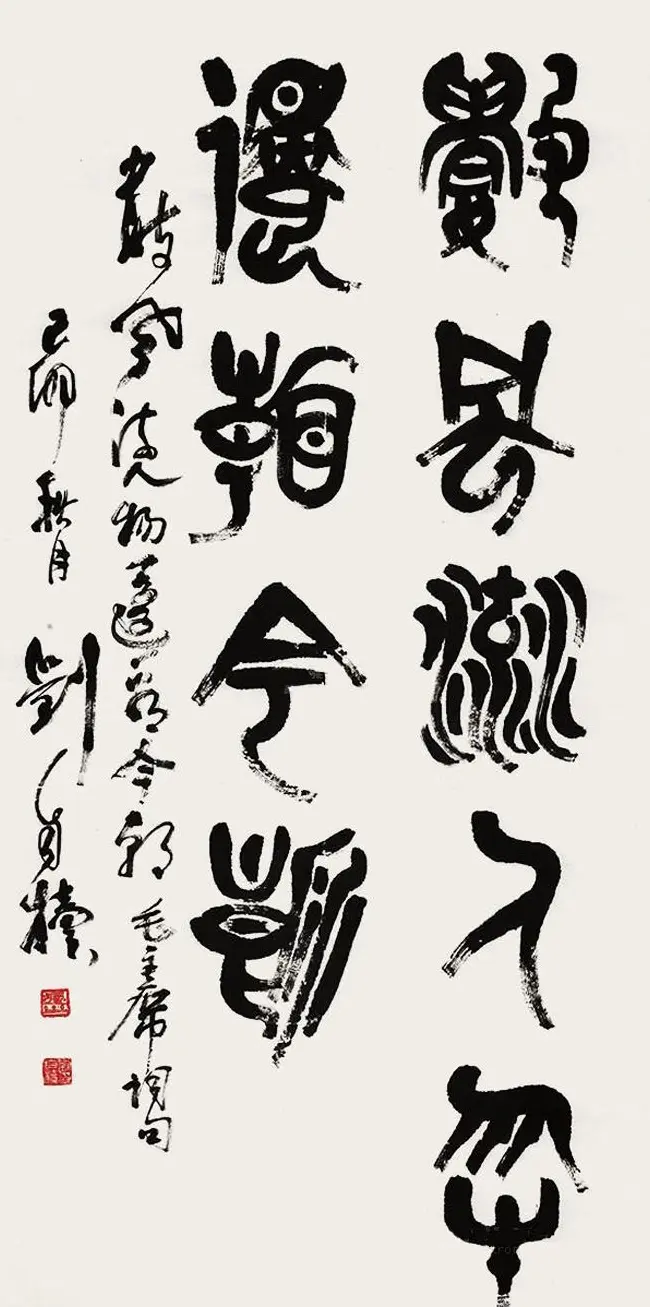 數風流人物
還看今朝
數風流人物還看今朝 毛主席詞句
己卯秋月 劉自櫝